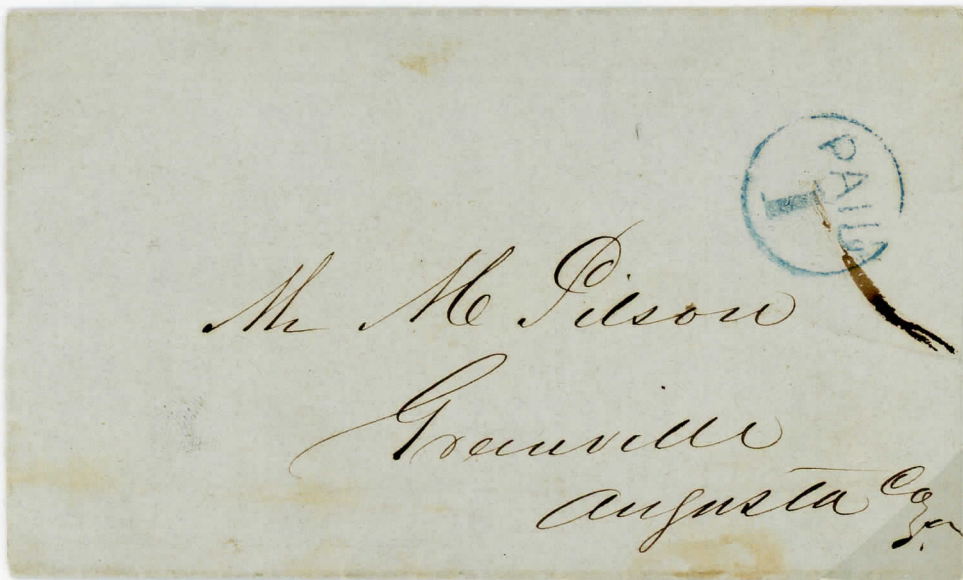 PAID
1
Mr M Pilson
Greenville
Augusta Co